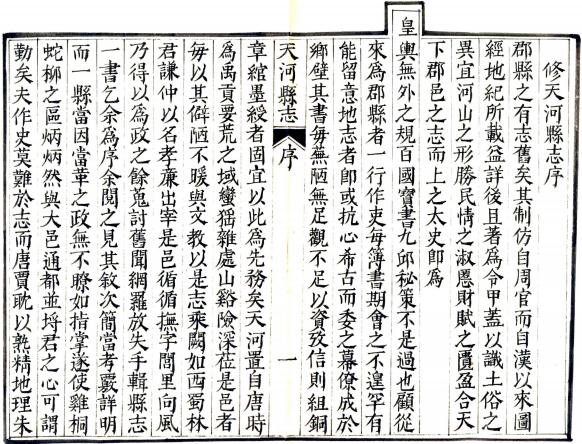 修天河縣志序
郡縣之有志舊矣其制仿自周官而自漢以來圖
經地紀所載益詳後且著為令甲蓋以識土俗之
異宜河山之形勝民情之淑慝財賦之匱盈合天
下郡邑之志而上之太史卽為
皇輿無外之規百國寶書九邱秘策不是過也顧從
來為郡縣者一行作吏每簿書期會之不遑罕有
能留意地志者卽或抗心希古而委之幕僚成於
鄉壁其書每無陋無足觀不足以資攷信則組銅
天河縣志
序
一
章綰墨綬者固宜以此為先務矣天河置自唐時
為禹貢要荒之域蠻猺雜處山谿險深蒞是邑者
每以其僻陋不暖與文教以是志乘闕如西蜀林
君謙仲以名孝廉出宰是邑循循撫字閭里向風
乃得以為政之餘蒐討舊聞網羅放失手輯縣志
一書乞余為序余閱之見其敘次簡當考覈詳明
而一縣當因當革之政無不瞭如指掌遂使雞桐
蛇柳之區炳炳然與大邑通都並埒君之心可謂
勤矣夫作史莫難於志而唐賈耽以熟精地理朱